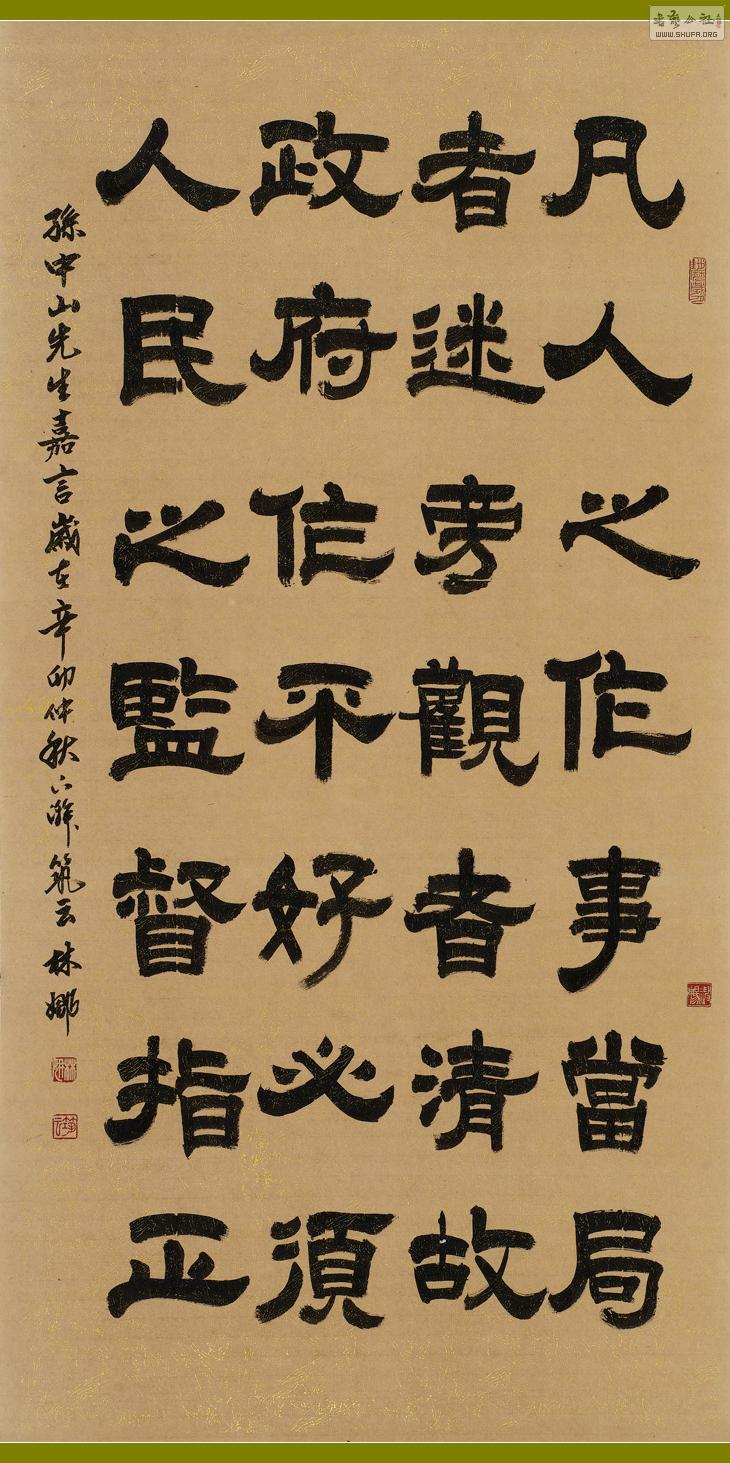 凡人之作事當局
者迷旁觀者清故
政府作不好必須
人民之監督指正
孫中山先生嘉言歲在辛卯仲秋下澣筑云林娜
WWW.SHUFA.ORG